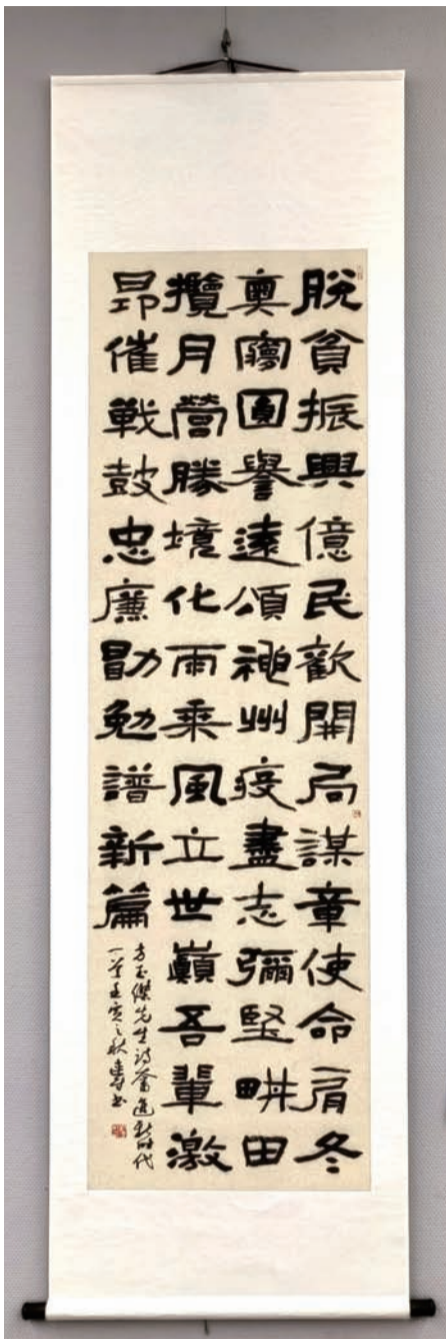 脫貧振興億民歡開局謀章使命肩冬
奧夢圓譽遠頌神州疫盡志彌堅畊田
攬月營勝境化雨乘風立世巔吾輩激
昂催戰鼓忠廉勖勉譜新篇
方玉傑先生詩奮進新时代
一首壬寅之秋书